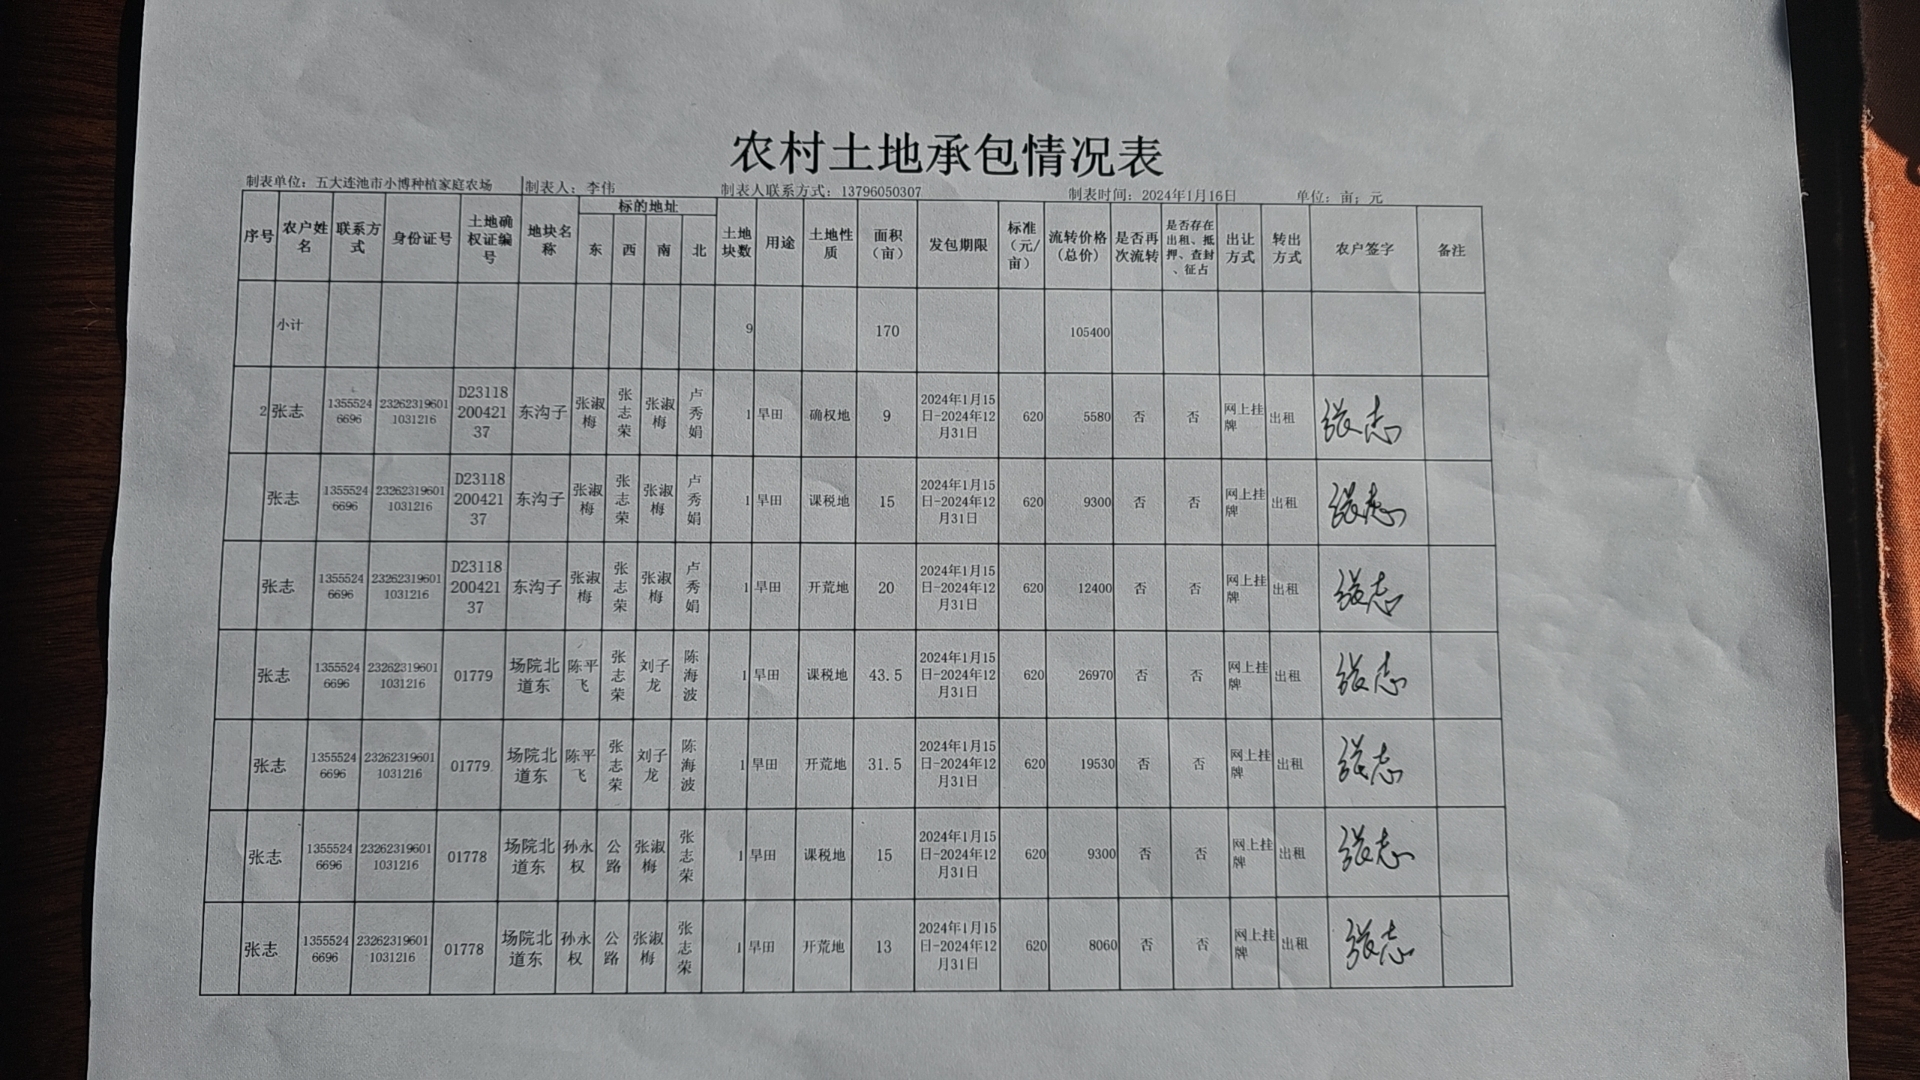 农村土地承包情况表
制表单位：五大连池市小博种植家庭农场 制表人：李伟 制表人联系方式：13796050307 制表时间：2024年1月16日 单位：亩；元
序号 农户姓名 联系方式 身份证号 土地确权证编号 地块名称 标的地址 东 西 南 北 土地块数 用途 土地性质 面积（亩） 发包期限 标准（元/亩） 流转价格（总价） 是否再次流转 是否存在出租、抵押、查封、征占 出让方式 转出方式 农户签字 备注
小计 9 170 105400
2 张志 13555246696 232623196011031216 D2311820042137 东沟子 张淑梅 张志荣 张淑梅 卢秀娟 1 旱田 确权地 9 2024年1月15日-2024年12月31日 620 5580 否 否 网上挂牌 出租 张志
张志 13555246696 232623196011031216 D2311820042137 东沟子 张淑梅 张志荣 张淑梅 卢秀娟 1 旱田 课税地 15 2024年1月15日-2024年12月31日 620 9300 否 否 网上挂牌 出租 张志
张志 13555246696 232623196011031216 D2311820042137 东沟子 张淑梅 张志荣 张淑梅 卢秀娟 1 旱田 开荒地 20 2024年1月15日-2024年12月31日 620 12400 否 否 网上挂牌 出租 张志
张志 13555246696 232623196011031216 01779 场院北道东 陈平飞 张志荣 刘子龙 陈海波 1 旱田 课税地 43.5 2024年1月15日-2024年12月31日 620 26970 否 否 网上挂牌 出租 张志
张志 13555246696 232623196011031216 01779 场院北道东 陈平飞 张志荣 刘子龙 陈海波 1 旱田 开荒地 31.5 2024年1月15日-2024年12月31日 620 19530 否 否 网上挂牌 出租 张志
张志 13555246696 232623196011031216 01778 场院北道东 孙永权 公路 张淑梅 张志荣 1 旱田 课税地 15 2024年1月15日-2024年12月31日 620 9300 否 否 网上挂牌 出租 张志
张志 13555246696 232623196011031216 01778 场院北道东 孙永权 公路 张淑梅 张志荣 1 旱田 开荒地 13 2024年1月15日-2024年12月31日 620 8060 否 否 网上挂牌 出租 张志